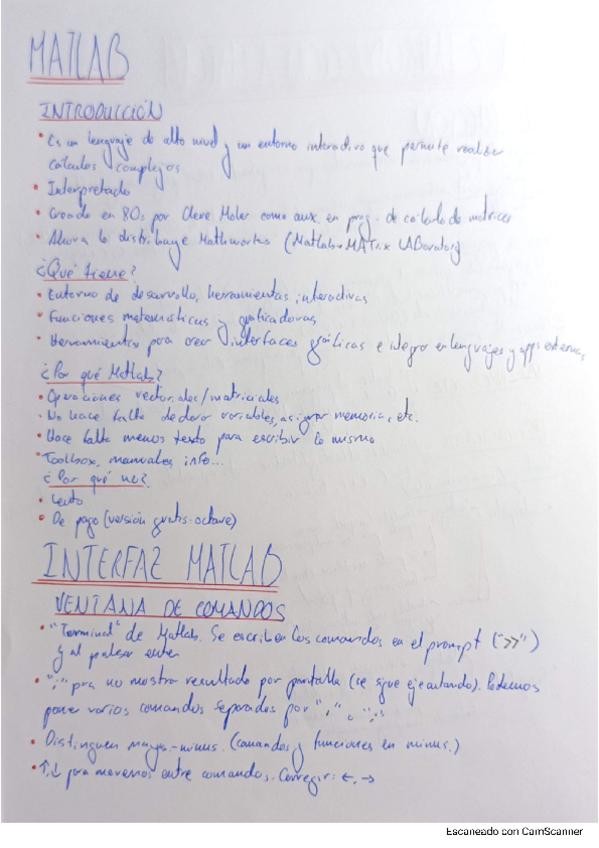 MATLAB
INTRODUCCIÓN
• Es un lenguaje de alto nivel y un entorno interactivo que permite realizar
cálculos complejos
• Interpretado
• Creado en 80s por Cleve Moler como aux. en prog. de cálculo de matrices
• Ahora lo distribuye Mathworks (Matlab=MATrix LABoratory
¿Qué tiene?
• Entorno de desarrollo, herramientas interactivas
• Funciones matemáticas y graficadoras
• Herramientas para crear interfaces gráficas e integrar en lenguajes y apps externas
¿Por qué Matlab?
• Operaciones vectoriales/matriciales
• No hace falta declarar variables, asignar memoria, etc.
• Hace falta menos texto para escribir lo mismo
• Toolbox, manuales, info...
¿Por qué no?
• Lento
• De pago (versión gratis-octave)
INTERFAZ MATLAB
VENTANA DE COMANDOS
• "Terminal" de Matlab. Se escriben los comandos en el prompt (">>")
y al pulsar enter
• ";" pra no mostrar resultado por pantalla (se sigue ejecutando). Podemos
poner varios comandos separados por "," o ";"
• Distinguen mayus-minus. (comandos y funciones en minus.)
• ↑,↓ para movernos entre comandos. Corregir: ←, →
Escaneado con CamScanner